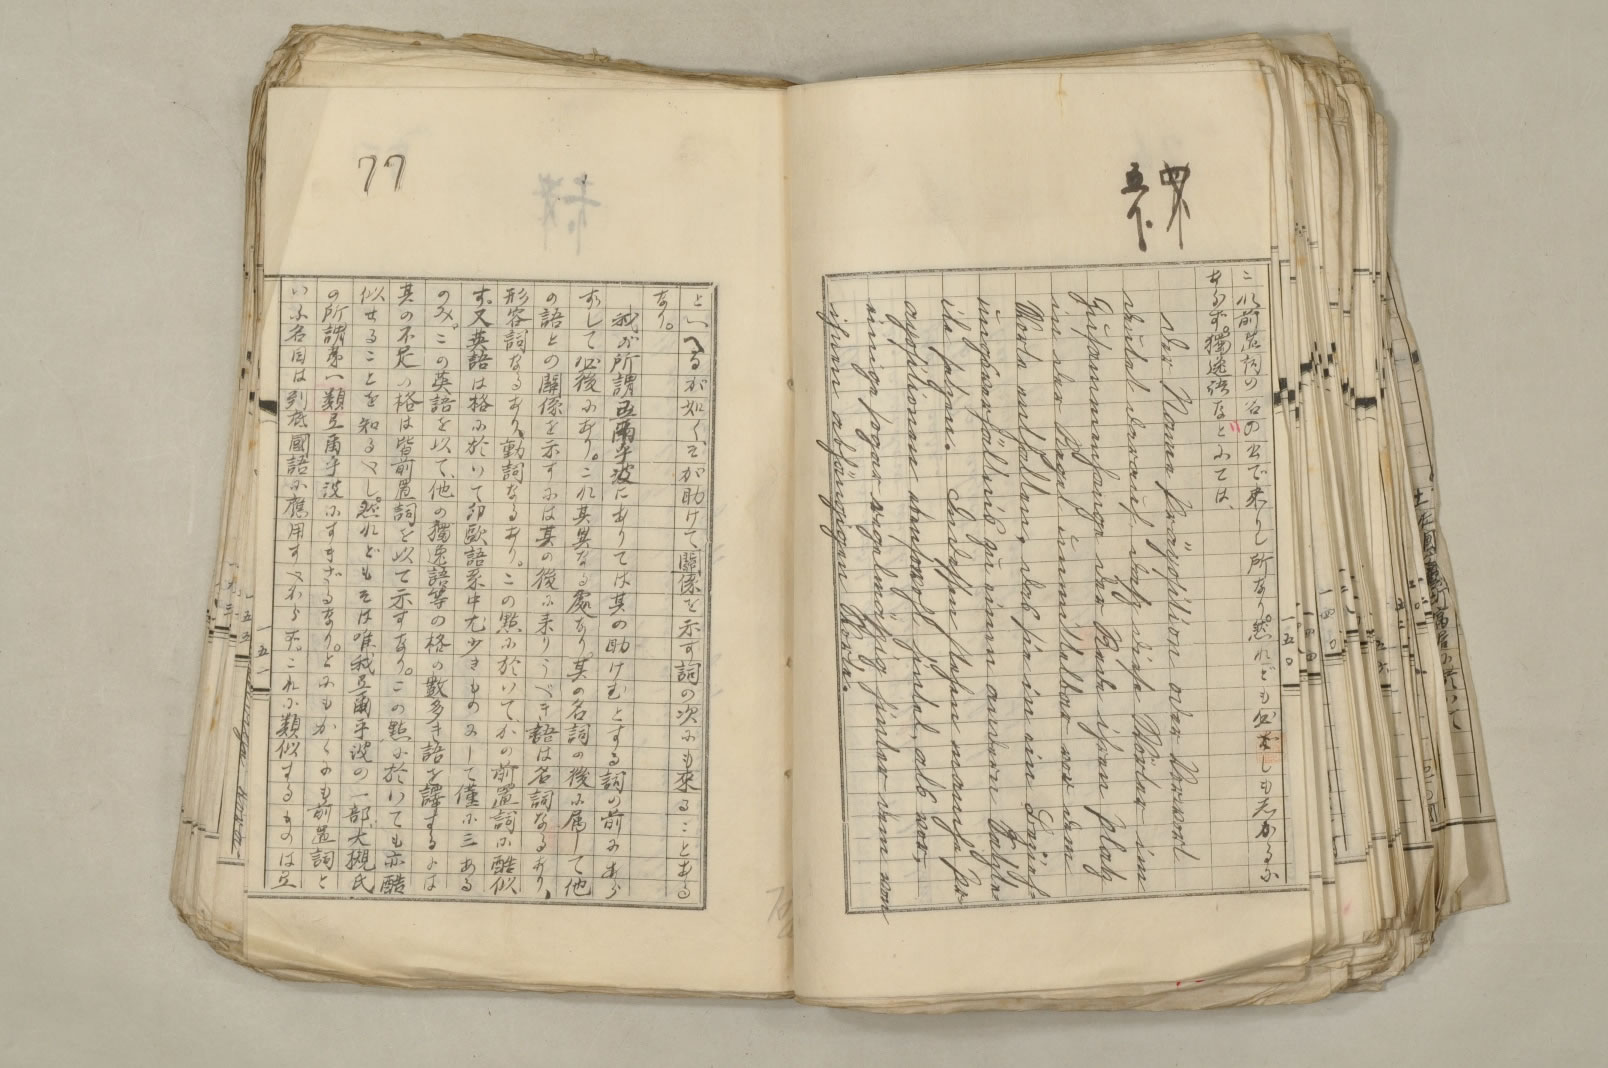 四下
五下
これ前置詞の名の出で來りし所なり。然れども必ずしも志かるに
あらず。獨逸語などにては、
Der Name Präposition oder Vorwort
deutet darauf, daß diese Wörter im
Zusammenhange der Rede ihren Platz
in der Regel unmittelbar vor dem
Worte enthalten, das sie in ein Begriffs-
verhältniß zu einem anderen
ihr folgen. Indessen stehen manche Prä-
positionen
einige sogar regelmäßig hinter dem von
ihnen abhängigen Worte.
一五〇
77
といへるが如くそが助けて關係を示す詞の次にも來ることある
なり。
我が所謂弖爾乎波にありては其の助けむとする詞の前にあら
ずして必後にあり。これ其異なる處なり。其の名詞の後に屬して他
の語との關係を示すには其の後に來りうべき語は名詞なるあり、
形容詞なるあり、動詞なるあり。この點に於いて、かの前置詞に酷似
す。又英語は格に於いて印歐語系中尤少きものにして僅に三ある
のみ。この英語を以て、他の獨逸語等の格の數多き語を譯するには
其の不足の格は皆前置詞を以て示すなり。この點に於いても亦酷
似せることを知るべし。然れどもそは唯我弖爾乎波の一部、大槻氏
の所謂第一類弖爾乎波にすぎざるなり。とにもかくにも前置詞と
いふ名目は到底國語に應用すべからず。これに類似するものは弖
一五一